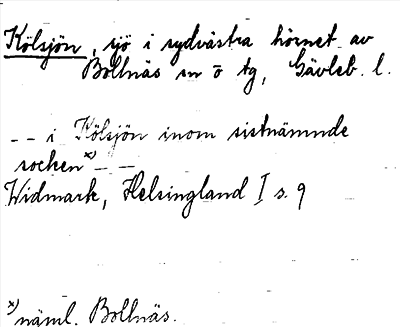 Kölsjön, sjö i sydvästra hörnet av
Bollnäs sn o tg, Gävleb. l.
-- i Kölsjön inom sistnämnde
socken x) --
Widmark, Helsingland I s. 9
x) näml. Bollnäs.